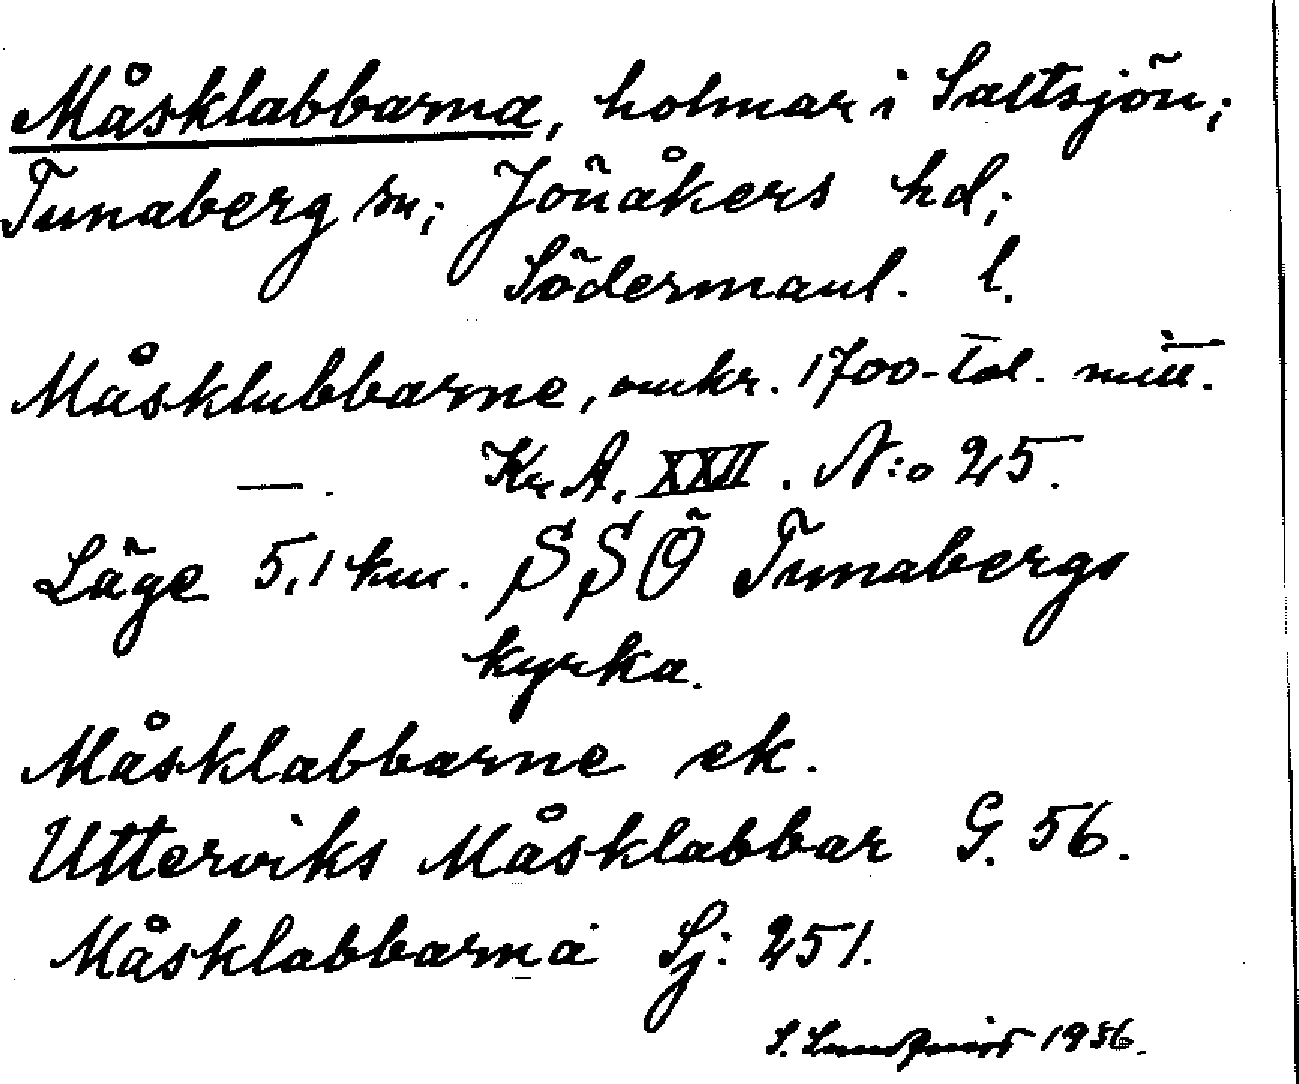 Måsklabbarna, holmar i Saltsjön;
Tunaberg sn; Jönåkers hd;
Södermanl. l.
Måsklubbarne, omkr. 1700-tal. mitt.
—. Kr. A. XXII. N:o 25.
Läge 5,1 km. SSÖ Tunabergs
kyrka.
Måsklabbarne ek.
Utterviks Måsklabbar G. 56.
Måsklabbarna Sj: 251.
S. Lundqvist 1936.